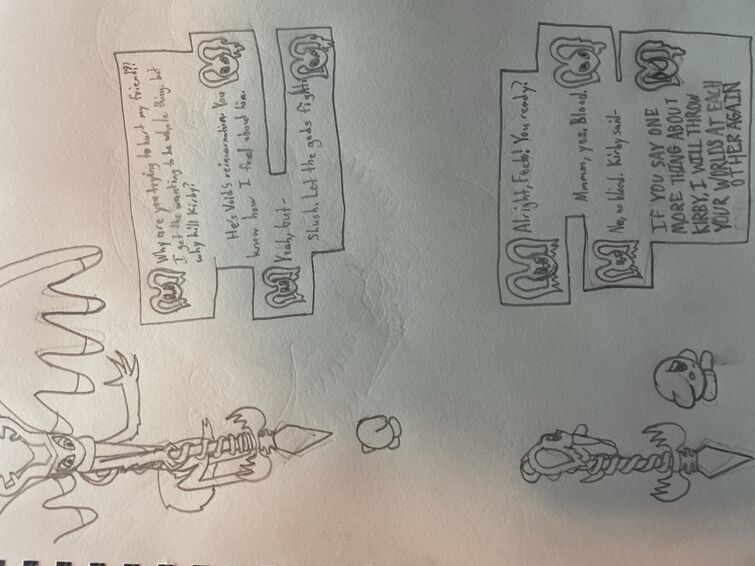 Why are you trying to hurt my friend!?
I get the wanting to be whole thing, but
why kill Kirby?
He's Void's reincarnation. You
know how I feel about him.
Yeah, but-
Shush. Let the gods fight.
Alright, Fecto! You ready?
Mmmm, yes, Blood.
No, no blood. Kirby said-
IF YOU SAY ONE
MORE THING ABOUT
KIRBY, I WILL THROW
YOUR WORLDS AT EACH
OTHER AGAIN